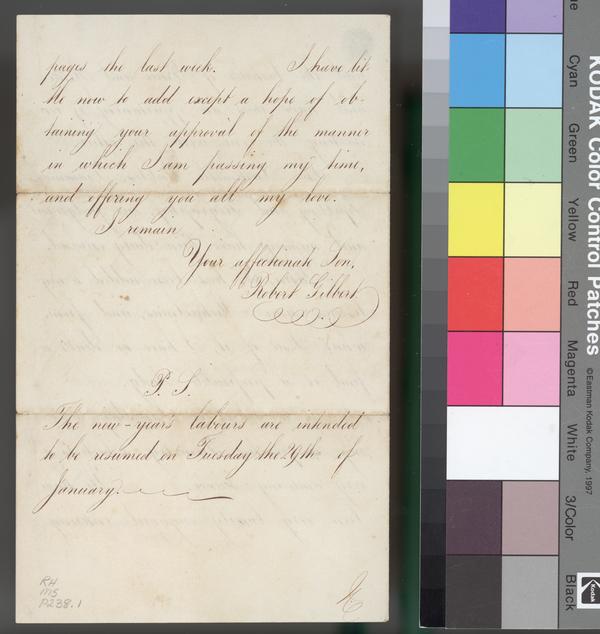 pages the last week. I have lit-
tle now to add except a hope of ob-
taining your approval of the manner
in which I am passing my time,
and offering you all my love.
I remain
Your affectionate Son,
Robert Gilbert
P. S.
The new-year's labours are intended
to be resumed on Tuesday the 29th of
January.
RH
MS
P238.1
KODAK Color Control Patches
©Eastman Kodak Company, 1997
Cyan
Green
Yellow
Red
Magenta
White
3/Color
Black
Kodak